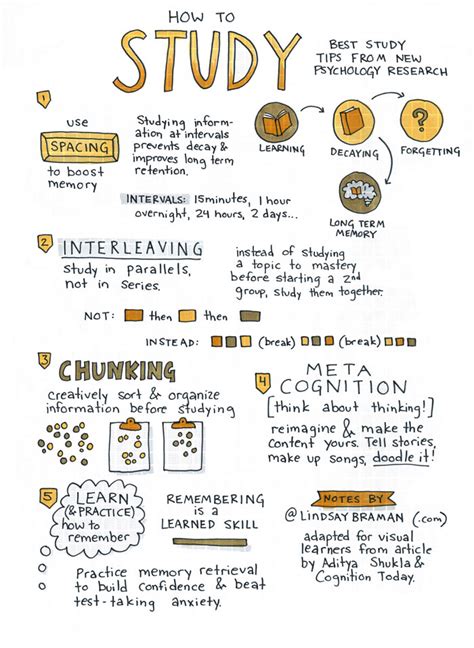 HOW TO
STUDY
BEST STUDY
TIPS FROM NEW
PSYCHOLOGY RESEARCH
1
use
SPACING
to boost
memory
Studying inform-
ation at intervals
prevents decay &
improves long term
retention.
INTERVALS: 15minutes, 1 hour
overnight, 24 hours, 2 days...
LEARNING
DECAYING
?
FORGETTING
LONG TERM
MEMORY
2
INTERLEAVING
study in parallels,
not in series.
instead of studying
a topic to mastery
before starting a 2nd
group, study them together.
NOT: then then
INSTEAD: (break) (break)
3
CHUNKING
creatively sort & organize
information before studying
4
META
COGNITION
[think about thinking!]
reimagine & make the
content yours. Tell stories,
make up songs, doodle it!
5
LEARN
(& PRACTICE)
how to
remember
REMEMBERING
is a
LEARNED SKILL
Practice memory retrieval
to build confidence & beat
test-taking anxiety.
NOTES BY
@LINDSAY BRAMAN (.com)
adapted for visual
learners from article
by Aditya Shukla &
Cognition Today.